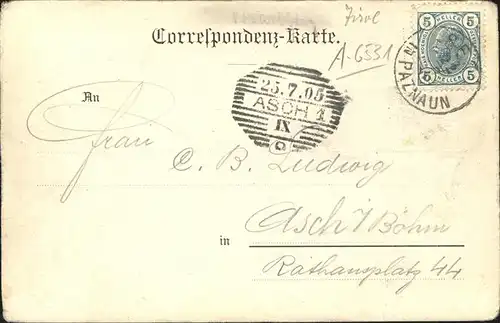 Tirol
Correspondenz-Karte.
A-6531
5 HELLER 5
5 HELLER 5
IN PAZNAUN
25.7.05
ASCH 1
IX
An
Frau
C. B. Ludwig
in
Asch i/Böhm
Rathausplatz 44